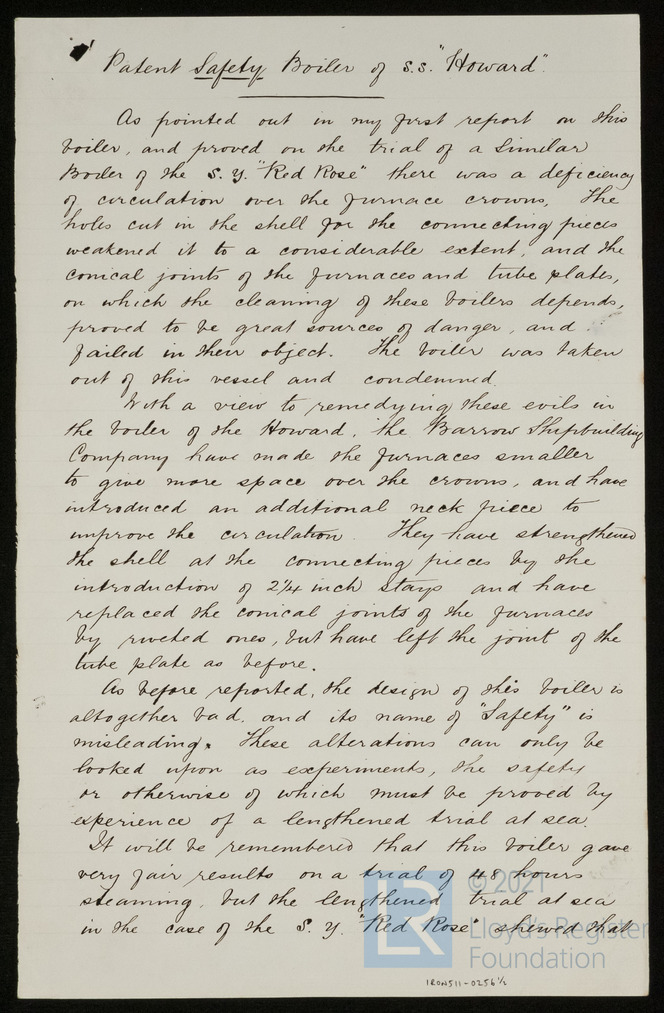 Patent Safety Boiler of S.S. "Howard".
As pointed out in my first report on this
boiler, and proved on the trial of a similar
Boiler of the S.Y. "Red Rose" there was a deficiency
of circulation over the furnace crowns, The
holes cut in the shell for the connecting pieces
weakened it to a considerable extent, and the
conical joints of the furnaces and tube plates,
on which the cleaning of these boilers depends,
proved to be great sources of danger, and
failed in their object. The boiler was taken
out of this vessel and condemned.
With a view to remedying these evils in
the boiler of the Howard, the Barrow Shipbuilding
Company have made the furnaces smaller
to give more space over the crowns, and have
introduced an additional neck piece to
improve the circulation. They have strengthened
the shell at the connecting pieces by the
introduction of 2¼ inch stays and have
replaced the conical joints of the furnaces
by riveted ones, but have left the joint of the
tube plate as before.
As before reported, the design of this boiler is
altogether bad, and its name of "Safety" is
misleading. These alterations can only be
looked upon as experiments, the safety
or otherwise of which must be proved by
experience of a lengthened trial at sea.
It will be remembered that this boiler gave
very fair results on a trial of 48 hours
steaming, but the lengthened trial at sea
in the case of the S.Y. "Red Rose" shewed that
LR
© 2021
Lloyd's Register
Foundation
IRON511-0256½